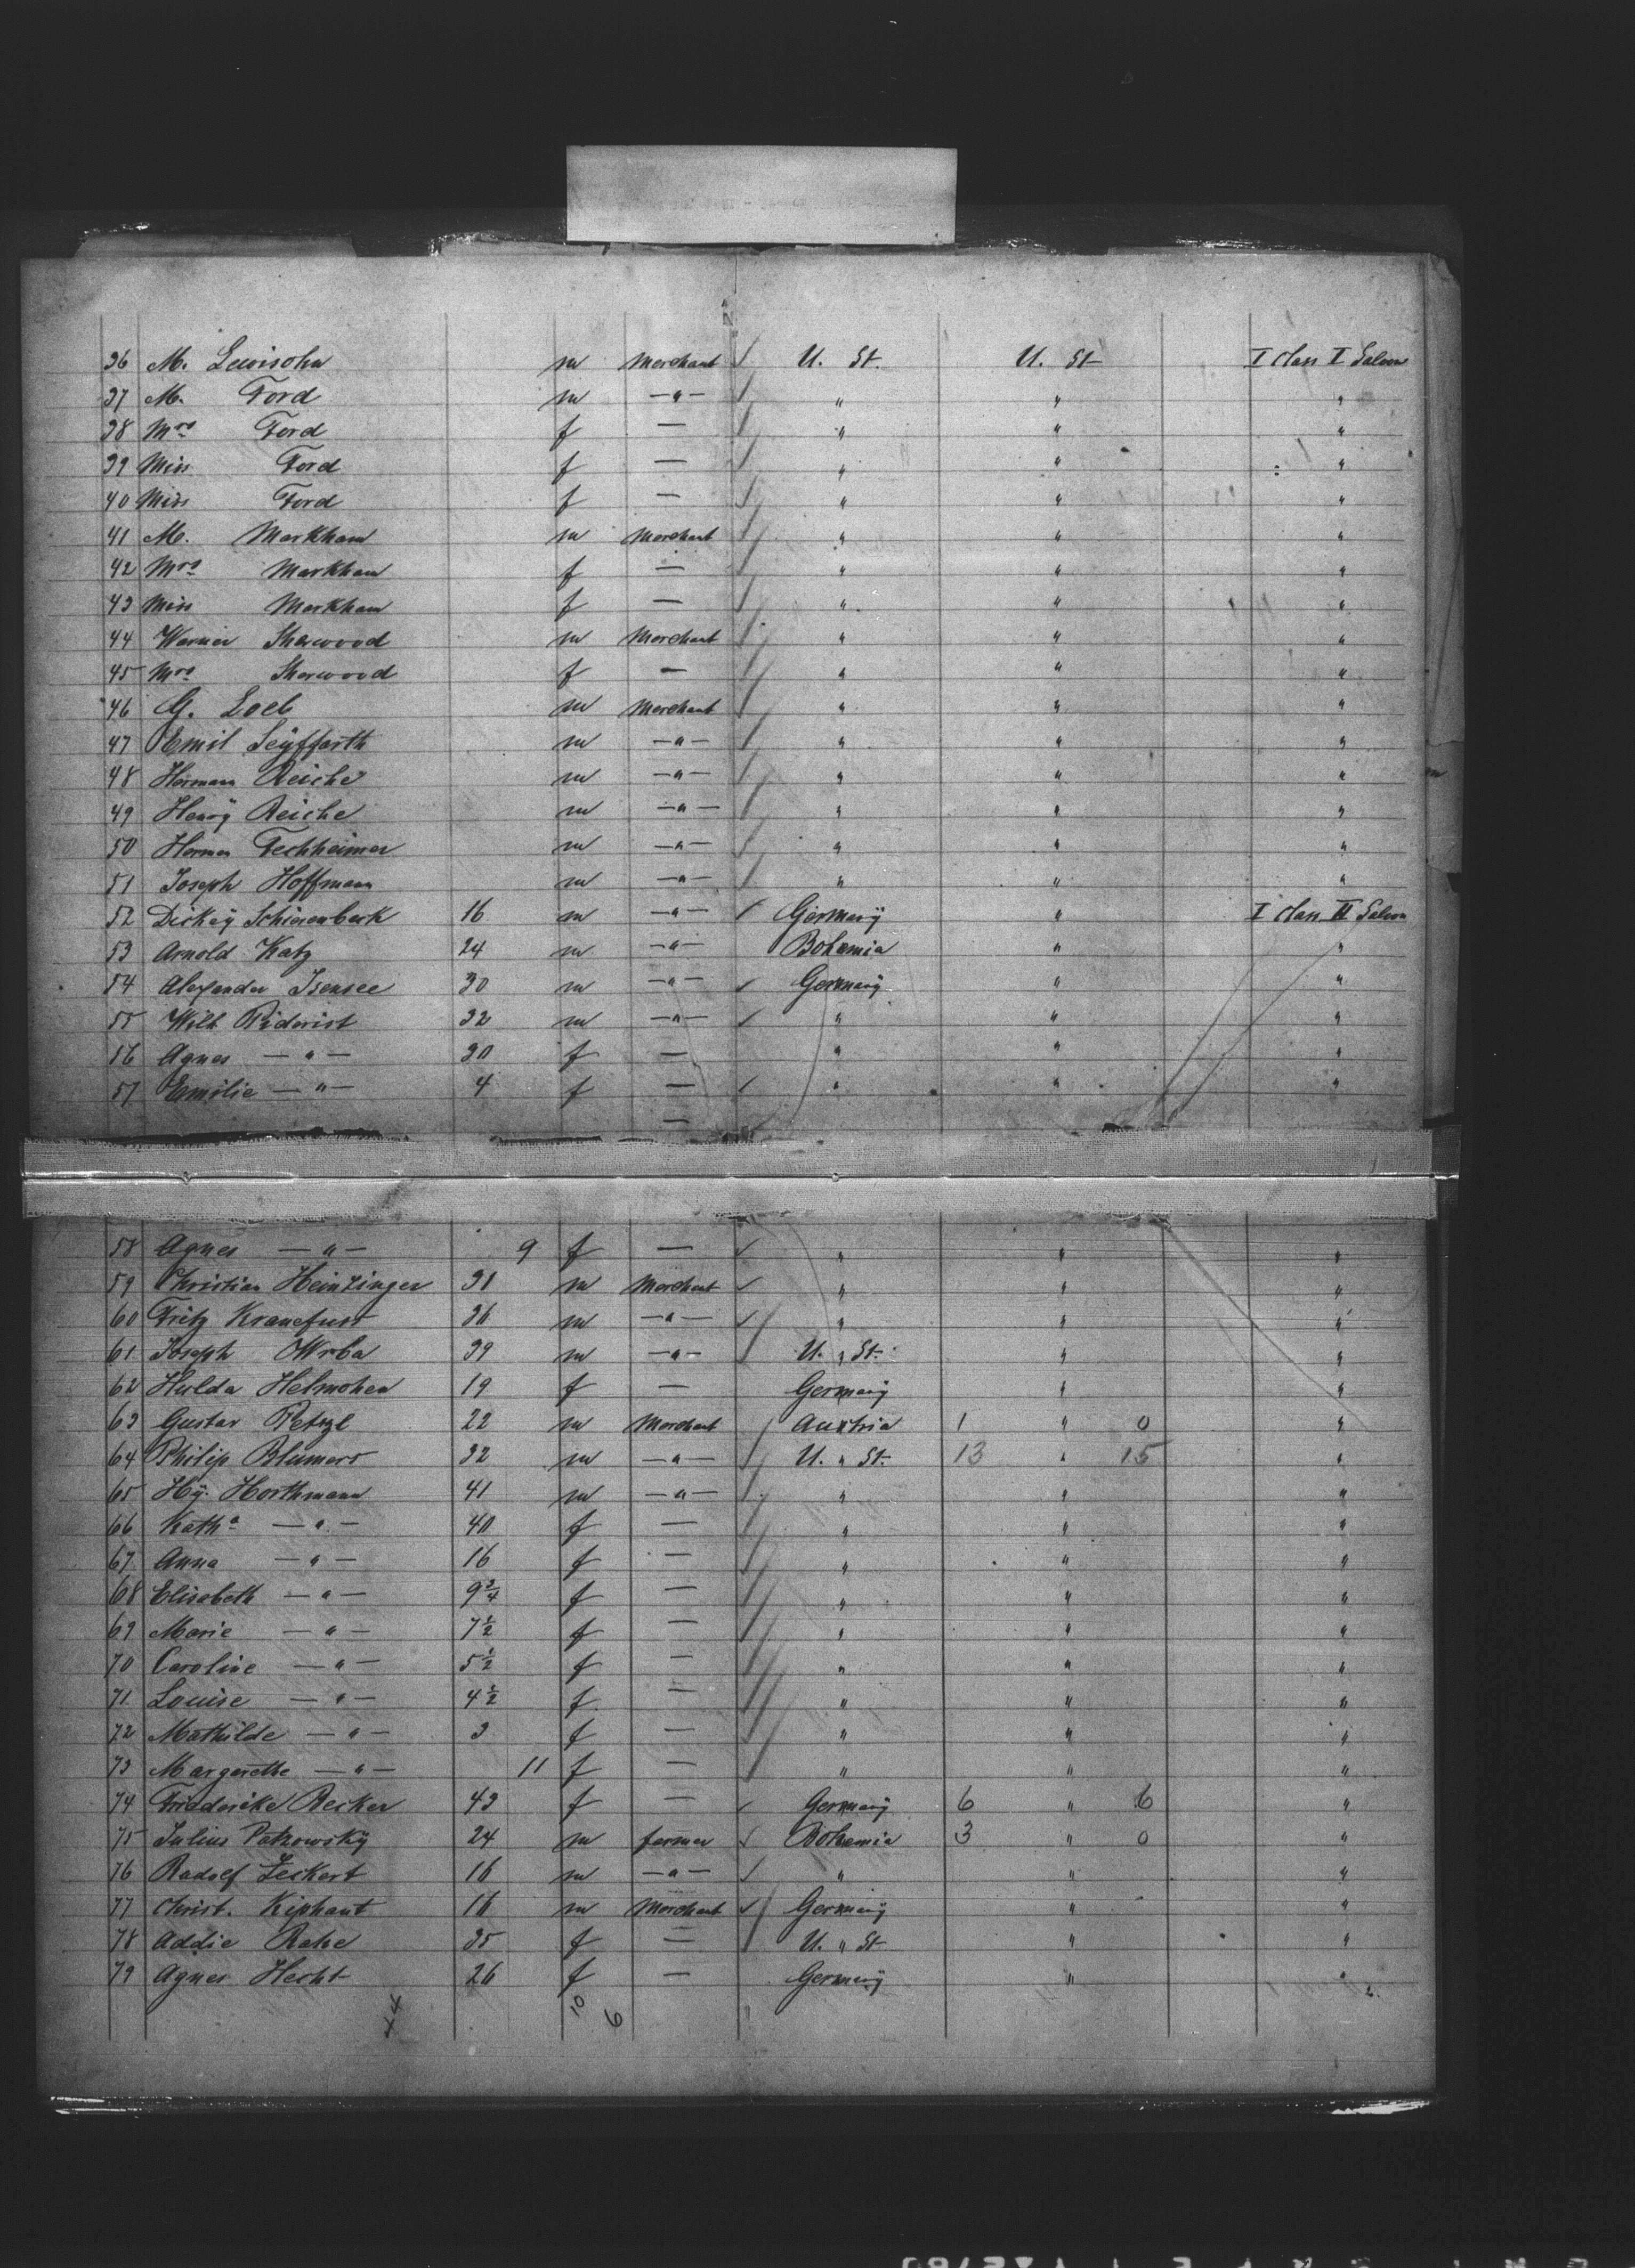 36 M. Lewisohn m Merchant U. St. U. St I class I Saloon
37 M. Ford m —"— " " "
38 Mrs Ford f — " " "
39 Miss Ford f — " " "
40 Miss Ford f — " " "
41 M. Markham m Merchant " " "
42 Mrs Markham f — " " "
43 Miss Markham f — " " "
44 Warner Sherwood m Merchant " " "
45 Mrs Sherwood f — " " "
46 G. Loeb m Merchant " " "
47 Emil Seÿffarth m —"— " " "
48 Hermann Reiche m —"— " " "
49 Henrÿ Reiche m —"— " " "
50 Herman Fechheimer m —"— " " "
51 Joseph Hoffmann m —"— " " "
52 Dickeÿ Schierenbeck 16 m —"— Germanÿ " I class II Saloon
53 Arnold Katz 24 m —"— Bohemia " "
54 Alexander Isensee 30 m —"— Germanÿ " "
55 Wilh Riderist 32 m —"— " " "
56 Agnes —"— 30 f — " " "
57 Emilie —"— 4 f — " " "
58 Agnes —"— 9 f — " " "
59 Christian Heintzinger 31 m Merchant " " "
60 Fritz Kranefuss 36 m —"— " " "
61 Joseph Wrba 39 m —"— U. " St. " "
62 Hulda Helmohen 19 f — Germanÿ " "
63 Gustav 22 m Merchant Austria 1 " 0 "
64 Philip Blumers 32 m —"— U. " St. 13 " 15 "
65 Hÿ. Horthmann 41 m —"— " " "
66 Katha —"— 40 f — " " "
67 Anna —"— 16 f — " " "
68 Elisabeth —"— 9 3/4 f — " " "
69 Marie —"— 7 1/2 f — " " "
70 Caroline —"— 5 1/2 f — " " "
71 Louise —"— 4 1/2 f — " " "
72 Mathilde —"— 3 f — " " "
73 Margarethe —"— 11 f — " " "
74 Friederike Becker 43 f — Germanÿ 6 " 6 "
75 Julius Patzowskÿ 24 m farmer Bohemia 3 " 0 "
76 Rudolf Leckert 16 m —"— " " "
77 Christ. Kiphaut 16 m Merchant Germanÿ " "
78 Addie Rehe 35 f — U. " St " "
79 Agnes Hecht 26 f — Germanÿ " "
44 10 6